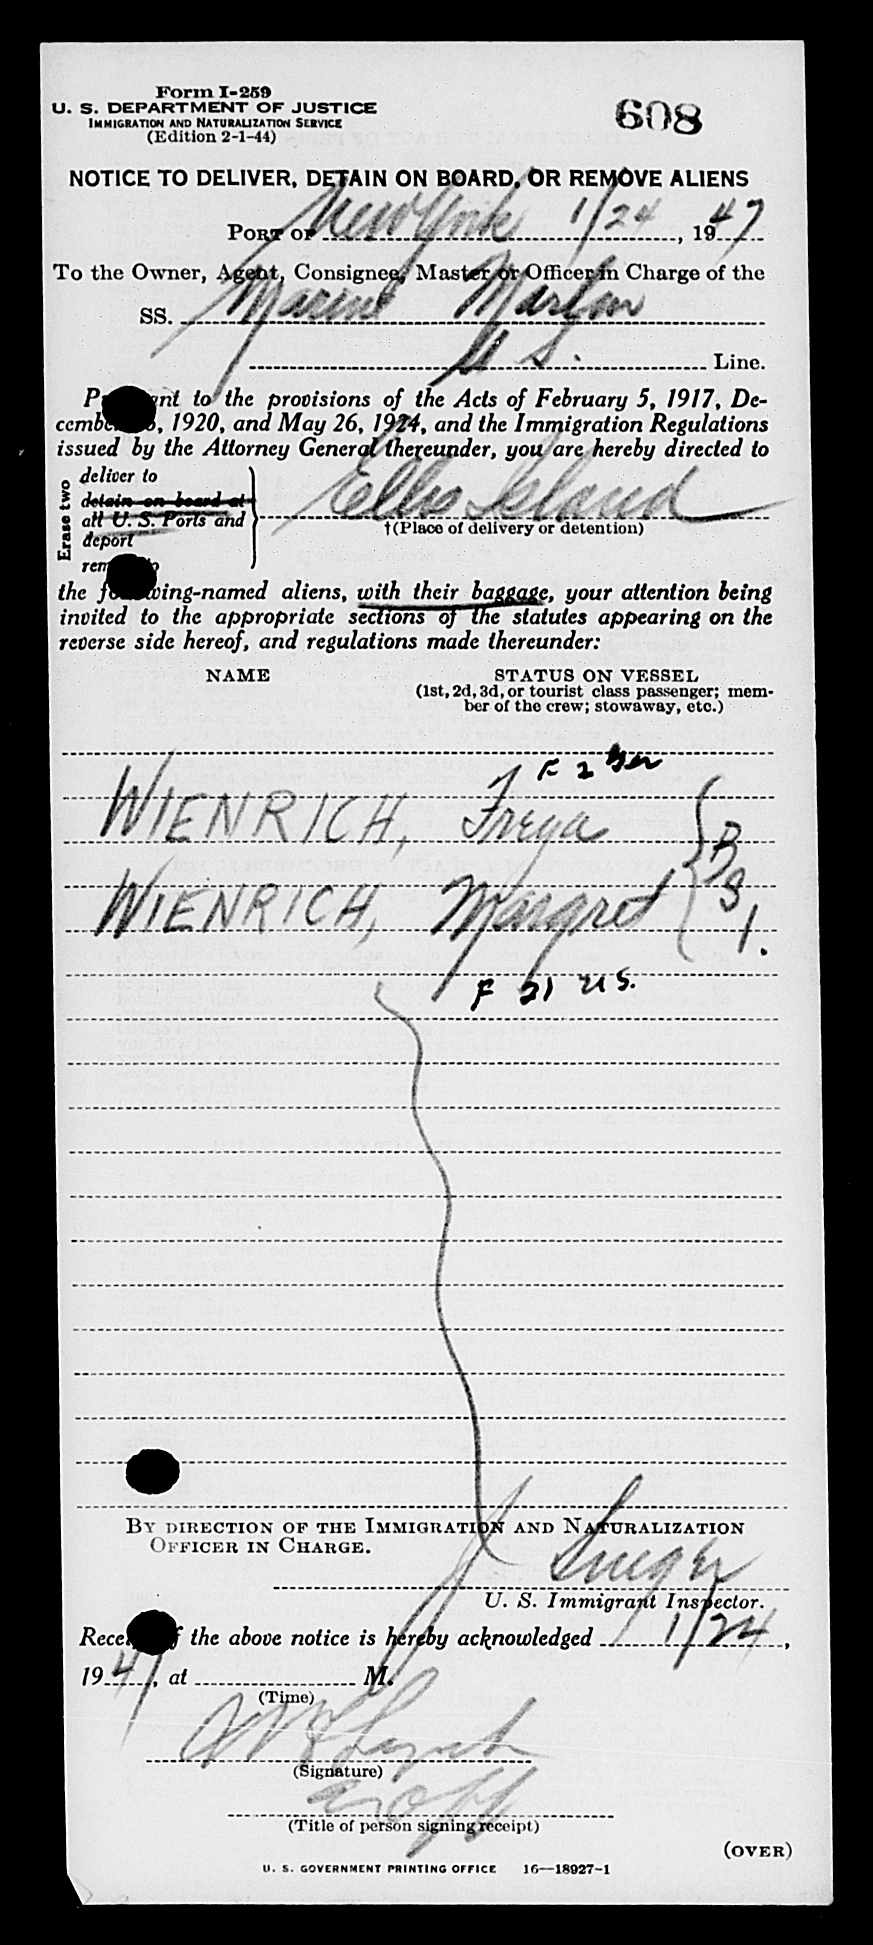 Form I-259
U. S. DEPARTMENT OF JUSTICE
IMMIGRATION AND NATURALIZATION SERVICE
(Edition 2-1-44)
608
NOTICE TO DELIVER, DETAIN ON BOARD, OR REMOVE ALIENS
PORT OF New York 1/24, 1947
To the Owner, Agent, Consignee, Master or Officer in Charge of the
SS. Marine Marlin
U S. Line.
P nt to the provisions of the Acts of February 5, 1917, De-
cemb , 1920, and May 26, 1924, and the Immigration Regulations
issued by the Attorney General thereunder, you are hereby directed to
Erase two
deliver to
detain on board at
all U. S. Ports and
deport
rem
Ellis Island
†(Place of delivery or detention)
the f wing-named aliens, with their baggage, your attention being
invited to the appropriate sections of the statutes appearing on the
reverse side hereof, and regulations made thereunder:
NAME STATUS ON VESSEL
(1st, 2d, 3d, or tourist class passenger; mem-
ber of the crew; stowaway, etc.)
F 2 Ger
WIENRICH, Freya
WIENRICH, Margret
B S I.
F 21 U S.
BY DIRECTION OF THE IMMIGRATION AND NATURALIZATION
OFFICER IN CHARGE.
U. S. Immigrant Inspector.
Rece f the above notice is hereby acknowledged 1/24,
1947, at M.
(Time)
(Signature)
(Title of person signing receipt)
(OVER)
U. S. GOVERNMENT PRINTING OFFICE 16—18927-1